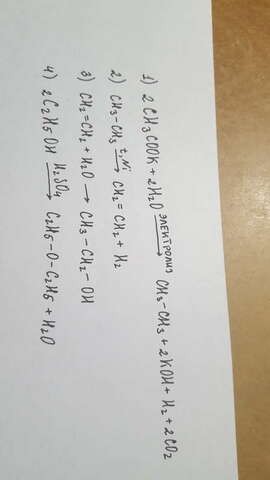 1) 2CH3COOK + 2H2O ЭЛЕКТРОЛИЗ → CH3-CH3 + 2KOH + H2 + 2CO2
2) CH3-CH3 t,Ni → CH2=CH2 + H2
3) CH2=CH2 + H2O → CH3-CH2-OH
4) 2C2H5OH H2SO4 → C2H5-O-C2H5 + H2O